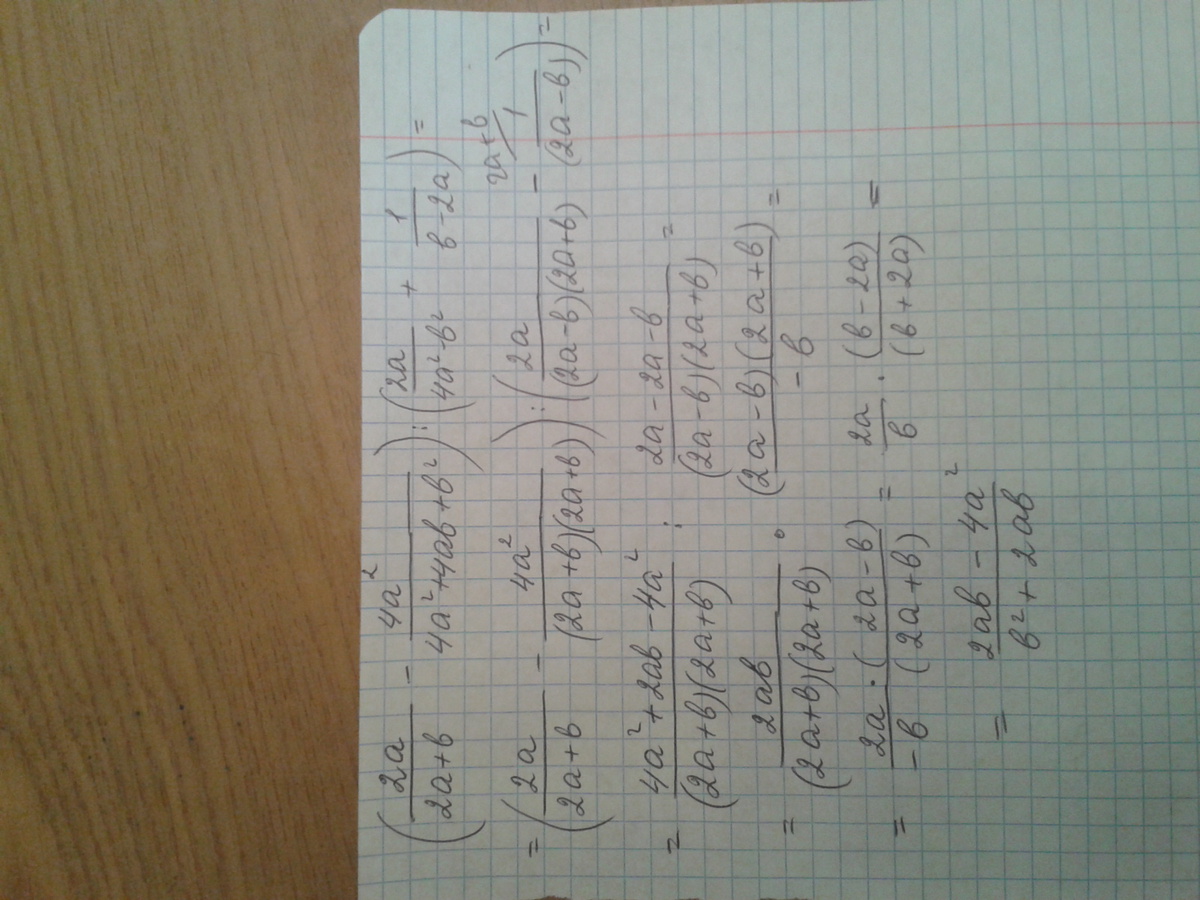 (2a/(2a+b) - 4a²/(4a²+4ab+b²)) : (2a/(4a²-b²) + 1/(b-2a)) =
= (2a/(2a+b) - 4a²/((2a+b)(2a+b))) : (2a/((2a-b)(2a+b)) - 2a+b/ 1/(2a-b)) =
= (4a²+2ab-4a²)/((2a+b)(2a+b)) : (2a-2a-b)/((2a-b)(2a+b)) =
= 2ab/((2a+b)(2a+b)) · ((2a-b)(2a+b))/(-b) =
= (2a·(2a-b))/(-b(2a+b)) = 2a/b · (b-2a)/(b+2a) =
= (2ab-4a²)/(b²+2ab)